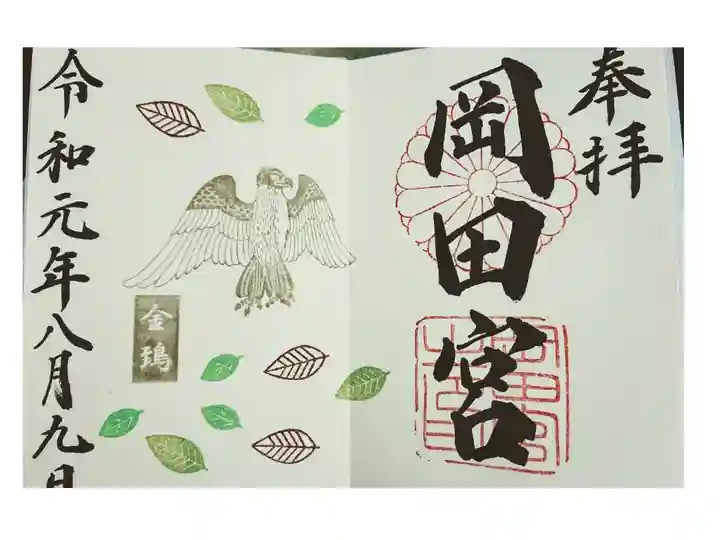 奉拝
岡田宮
金鵄
令和元年八月九日